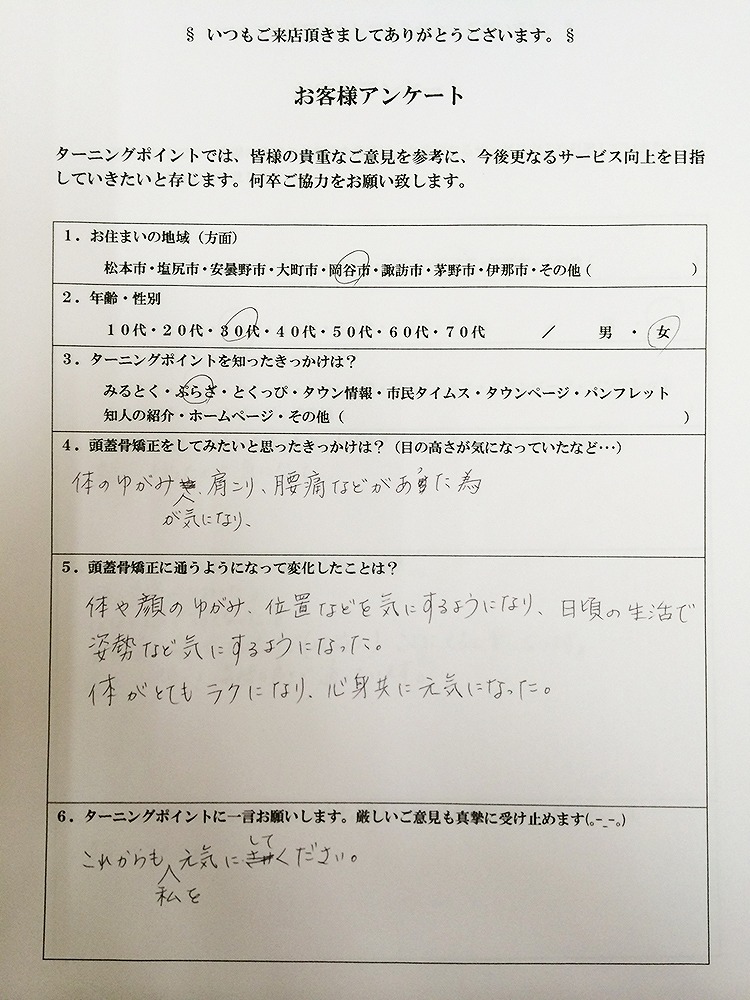 § いつもご来店頂きましてありがとうございます。§
お客様アンケート
ターニングポイントでは、皆様の貴重なご意見を参考に、今後更なるサービス向上を目指
していきたいと存じます。何卒ご協力をお願い致します。
1．お住まいの地域（方面）
松本市・塩尻市・安曇野市・大町市・岡谷市・諏訪市・茅野市・伊那市・その他（　　　　　　）
2．年齢・性別
１０代・２０代・３０代・４０代・５０代・６０代・７０代　　　／　　男　・　女
3．ターニングポイントを知ったきっかけは？
みるとく・ぷらざ・とくっぴ・タウン情報・市民タイムス・タウンページ・パンフレット
知人の紹介・ホームページ・その他（　　　　　　　　　　　　　　　　　　　　）
4．頭蓋骨矯正をしてみたいと思ったきっかけは？（目の高さが気になっていたなど…）
体のゆがみ、肩こり、腰痛などがあった為
が気になり、
5．頭蓋骨矯正に通うようになって変化したことは？
体や顔のゆがみ、位置などを気にするようになり、日頃の生活で
姿勢など気にするようになった。
体がとてもラクになり、心身共に元気になった。
6．ターニングポイントに一言お願いします。厳しいご意見も真摯に受け止めます(｡-_-｡)
して
これからも元気にください。
私を